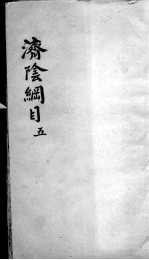 濟陰綱目
五